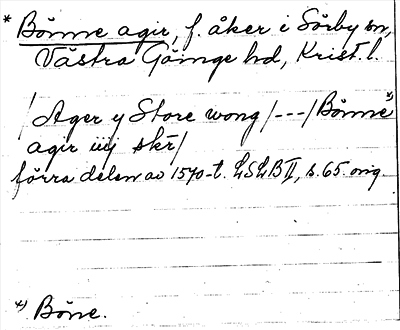 * Bönne agir, f. åker i Sörby sn,
Västra Göinge hd, Krist. l.
/ Ager y Store wong /---/ Bönne *)
agir iiij skr̄ /
förra delen av 1570-t. LSLB II, s. 65. orig
*) Böne.